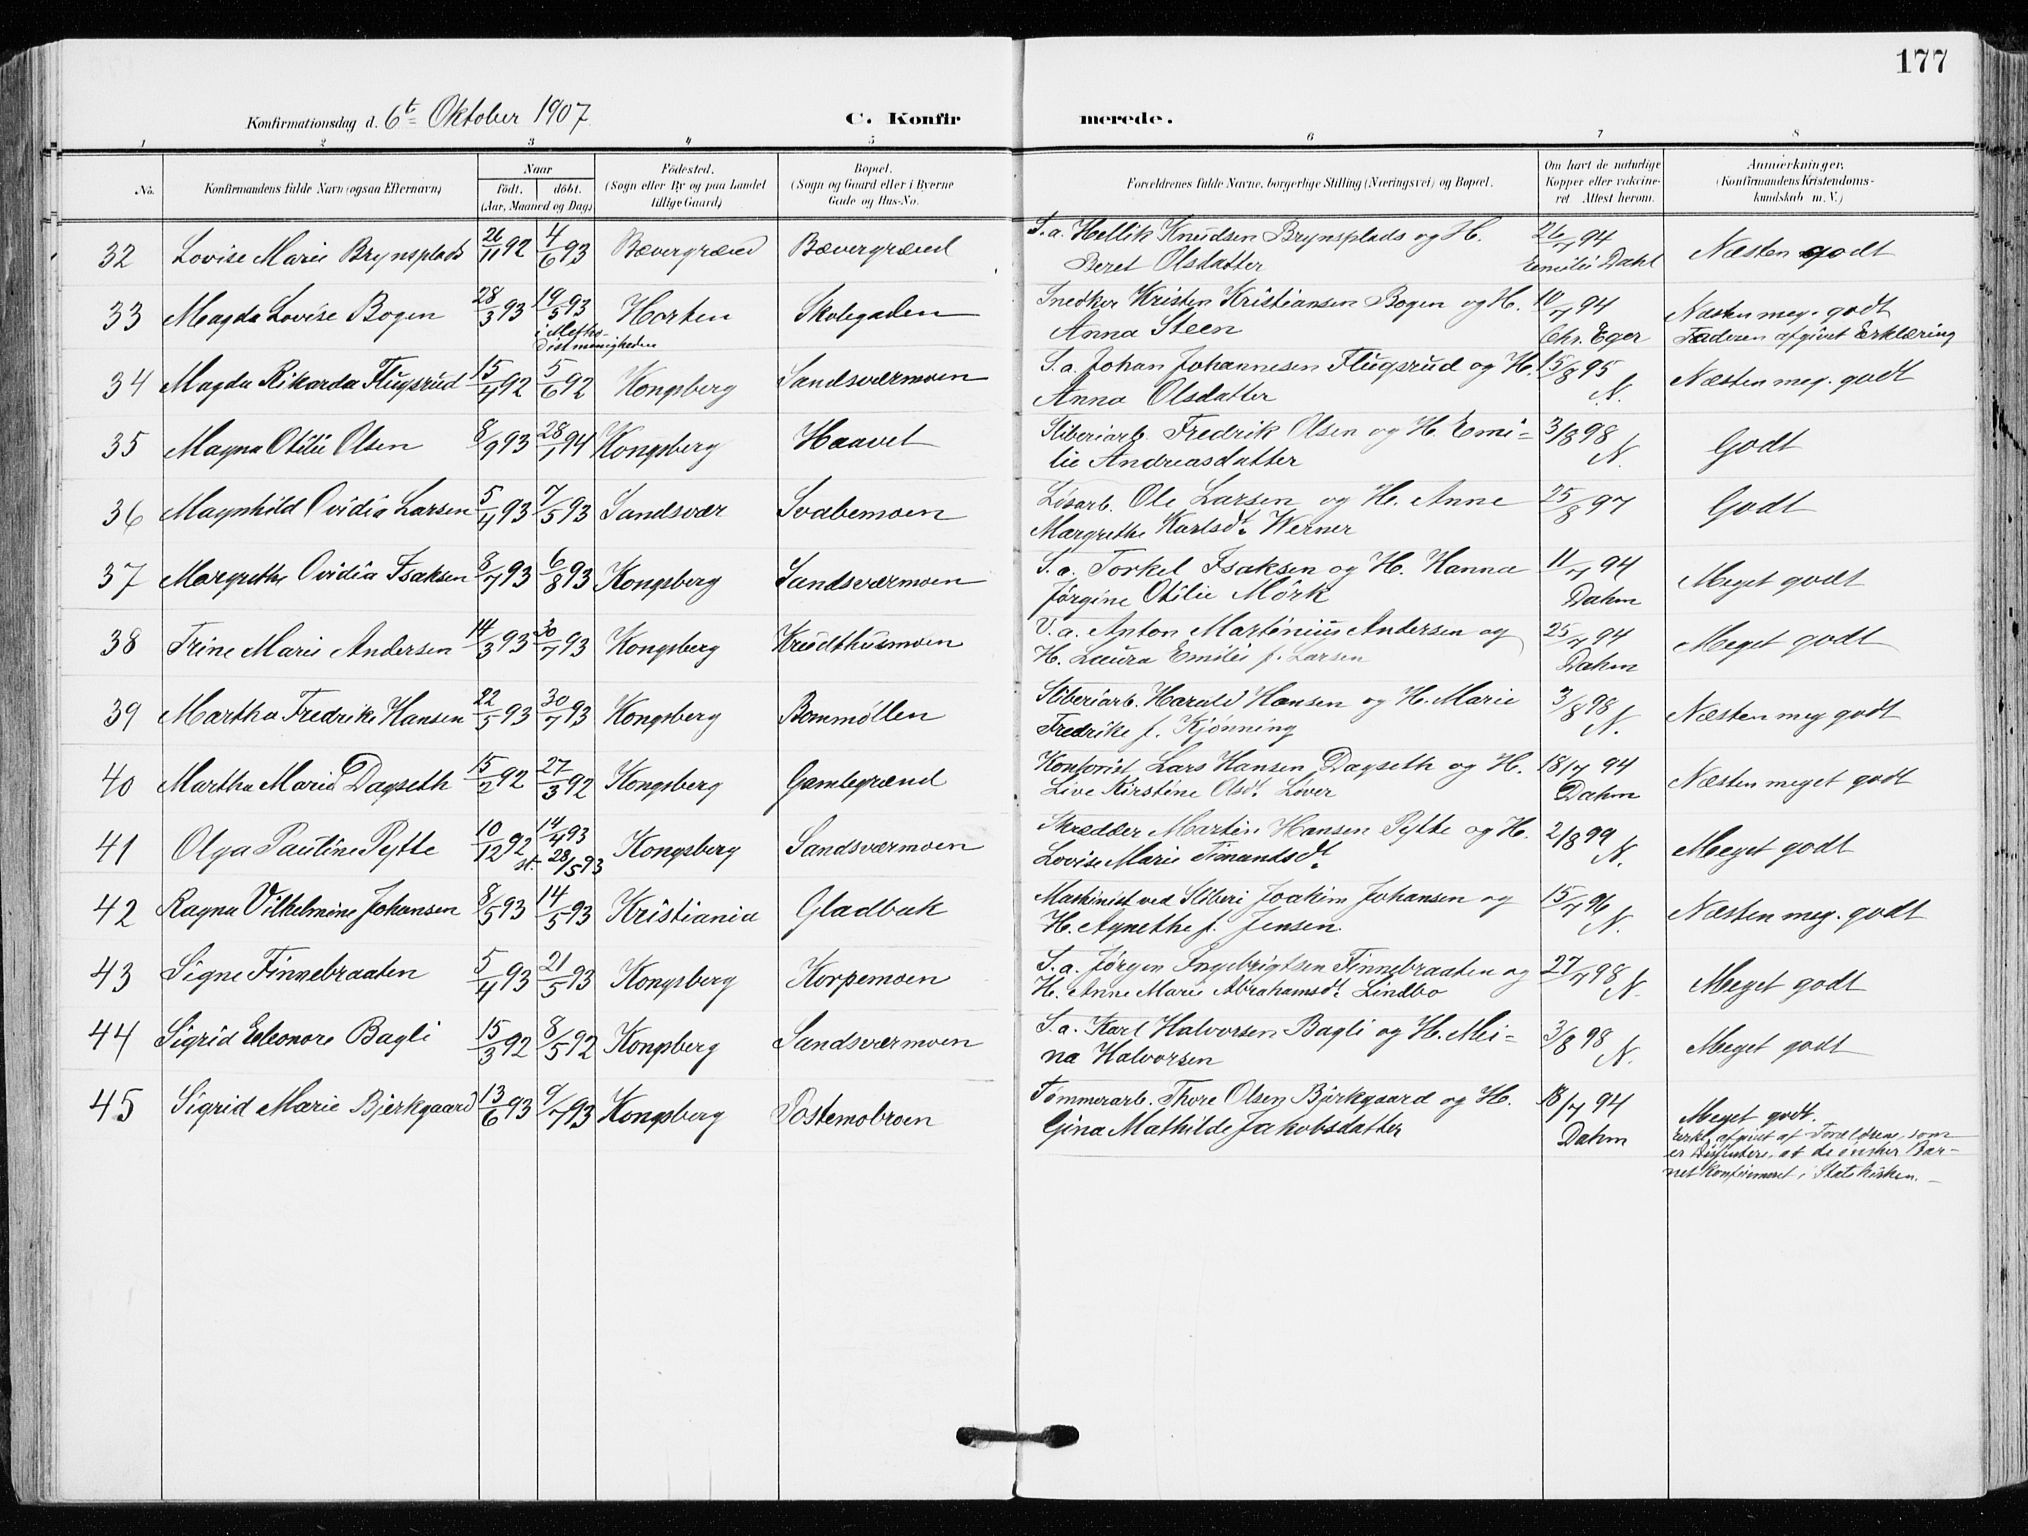 177
Konfirmationsdag d. 6t Oktober 1907. C. Konfirmerede.
1 2 3 4 5 6 7 8
No. Konfirmandens fulde Navn (ogsaa Efternavn) Naar født. døbt. (Aar, Maaned og Dag) Fødested. (Sogn eller By og paa Landet tillige Gaard) Bopæl. (Sogn og Gaard eller i Byerne Gade og Hus-No. Forældrenes fulde Navne, borgerlige Stilling (Næringsvei) og Bopæl. Om havt de naturlige Kopper eller vakcineret. Attest herom. Anmærkninger. (Konfirmandens Kristendomskundskab m. V.)
32 Lovise Marie Brynsplads 26/11 92 4/6 93 Bævergrænd Bævergrænd S.a. Hellik Knudsen Brynsplads og H. 26/7 94 Næsten godt
Beret Olsdatter Emilie Dahl
33 Magda Lovise Bogen 28/3 93 19/5 93 Horten Skolegaden Snedker Kristen Kristiansen Bogen og H. 10/7 94 Næsten meg. godt
i Methodistmenigheden Anna Steen Chr. Eger Faderen afgivet Erklæring
34 Magda Rikarda Flugsrud 15/4 92 5/6 92 Kongsberg Sandsværmoen S.a. Johan Johannesen Flugsrud og H. 15/8 95 Næsten meg. godt
Anna Olsdatter N.
35 Magna Otilie Olsen 8/9 93 28/1 94 Kongsberg Haavet Sliberiarb. Fredrik Olsen og H. Emi= 3/8 98 Godt
lie Andreasdatter N.
36 Maynhild Ovidia Larsen 5/4 93 7/5 93 Sandsvær Svabemoen Løsarb. Ole Larsen og H. Anne 25/8 97 Godt
Margrethe Karlsdt. Werner
37 Margrethe Ovidia Isaksen 8/7 93 6/8 93 Kongsberg Sandsværmoen S.a. Torkel Isaksen og H. Hanna 11/7 94 Meget godt
Jørgine Otilie Mørk Dahm
38 Trine Marie Andersen 14/3 93 30/7 93 Kongsberg Krudthusmoen V.a. Anton Martinius Andersen og 25/7 94 Meget godt
H. Laura Emilie f. Larsen Dahm
39 Martha Fredrike Hansen 22/5 93 30/7 93 Kongsberg Bommøllen Sliberiarb. Harald Hansen og H. Marie 3/8 98 Næsten meg godt
Fredrike f. Kjønning N.
40 Martha Marie Dagseth 15/2 92 27/3 92 Kongsberg Gamlegrænd Lars Hansen Dagseth og H. 18/7 94 Næsten meget godt
Live Kirstine Olsdt. Løver Dahm
41 Olga Pauline Pytte 10/12 92 14/4 93 Kongsberg Sandsværmoen Skrædder Martin Hansen Pytte og H. 2/8 99 Meget godt
st. 28/5 93 Lovise Marie dt. N.
42 Ragna Vilhelmine Johansen 8/5 93 14/5 93 Kristiania Gladbak Maskinist ved Sliberi Joakim Johansen og 15/7 96 Næsten meg. godt
H. Agnethe f. Jensen. N.
43 Signe Finnebraaten 5/4 93 21/5 93 Kongsberg Korpemoen S.a. Jørgen Ingebrigtsen Finnebraaten og 27/7 98 Meget godt
H. Anne Marie Abrahamsdt. Lindbo N.
44 Sigrid Eleonore Bagli 15/3 92 8/5 92 Kongsberg Sandsværmoen S.a. Karl Halvorsen Bagli og H. Mei= 3/8 98 Meget godt
na Halvorsen N.
45 Sigrid Marie Bjerkgaard 13/6 93 9/7 93 Kongsberg Postemobroen Tømmerarb. Thore Olsen Bjørkgaard og H. 18/7 94 Meget godt.
Gina Mathilde Jakobsdatter Dahm Erkl. afgivet af Forældrene, som
er Dissentere, at de ønsker Bar-
net konfirmeret i Statskirken.